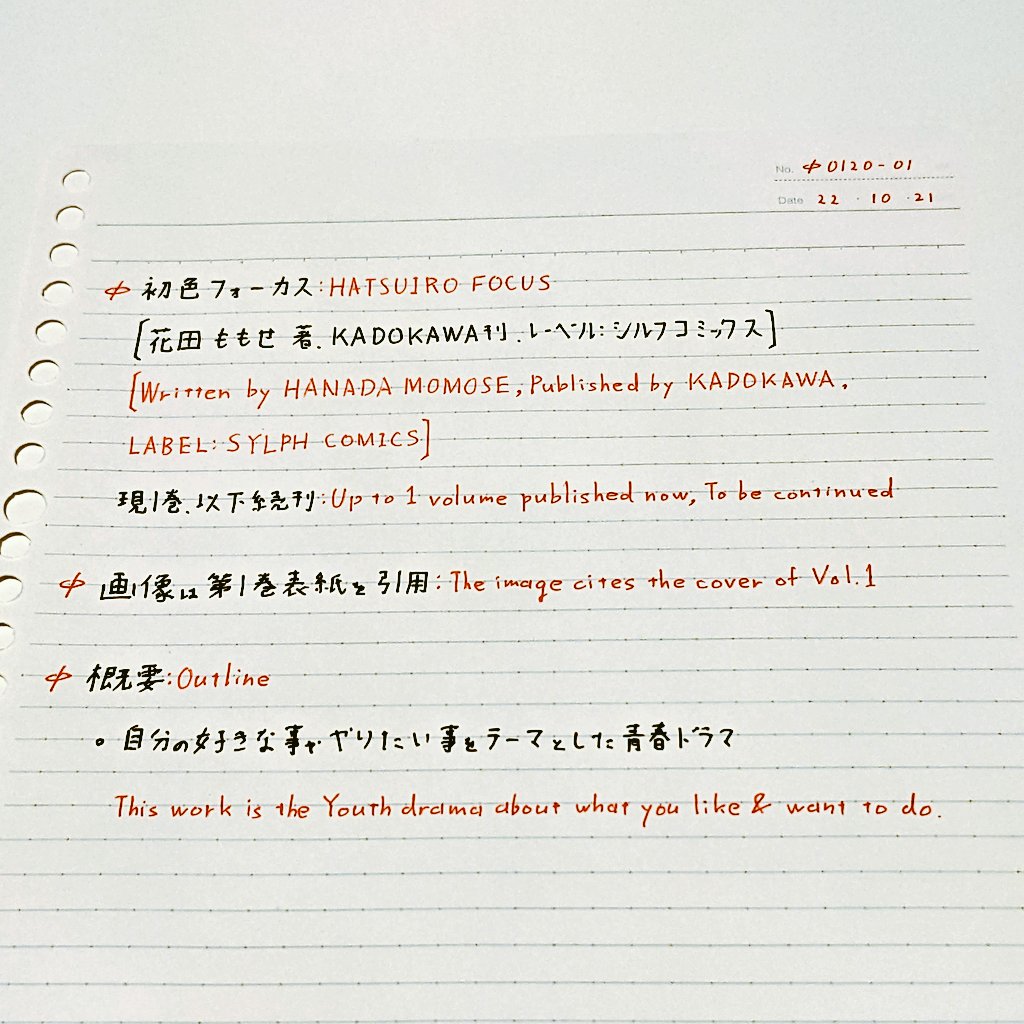 No. φ0120-01
Date 22・10・21
φ 初色フォーカス:HATSUIRO FOCUS
[花田ももせ 著. KADOKAWA刊. レーベル:シルフコミックス]
[Written by HANADA MOMOSE, Published by KADOKAWA.
LABEL: SYLPH COMICS]
現1巻.以下続刊:Up to 1 volume published now, To be continued
φ 画像は第1巻表紙を引用:The image cites the cover of Vol.1
φ 概要:Outline
• 自分の好きな事や やりたい事をテーマとした青春ドラマ
This work is the Youth drama about what you like & want to do.